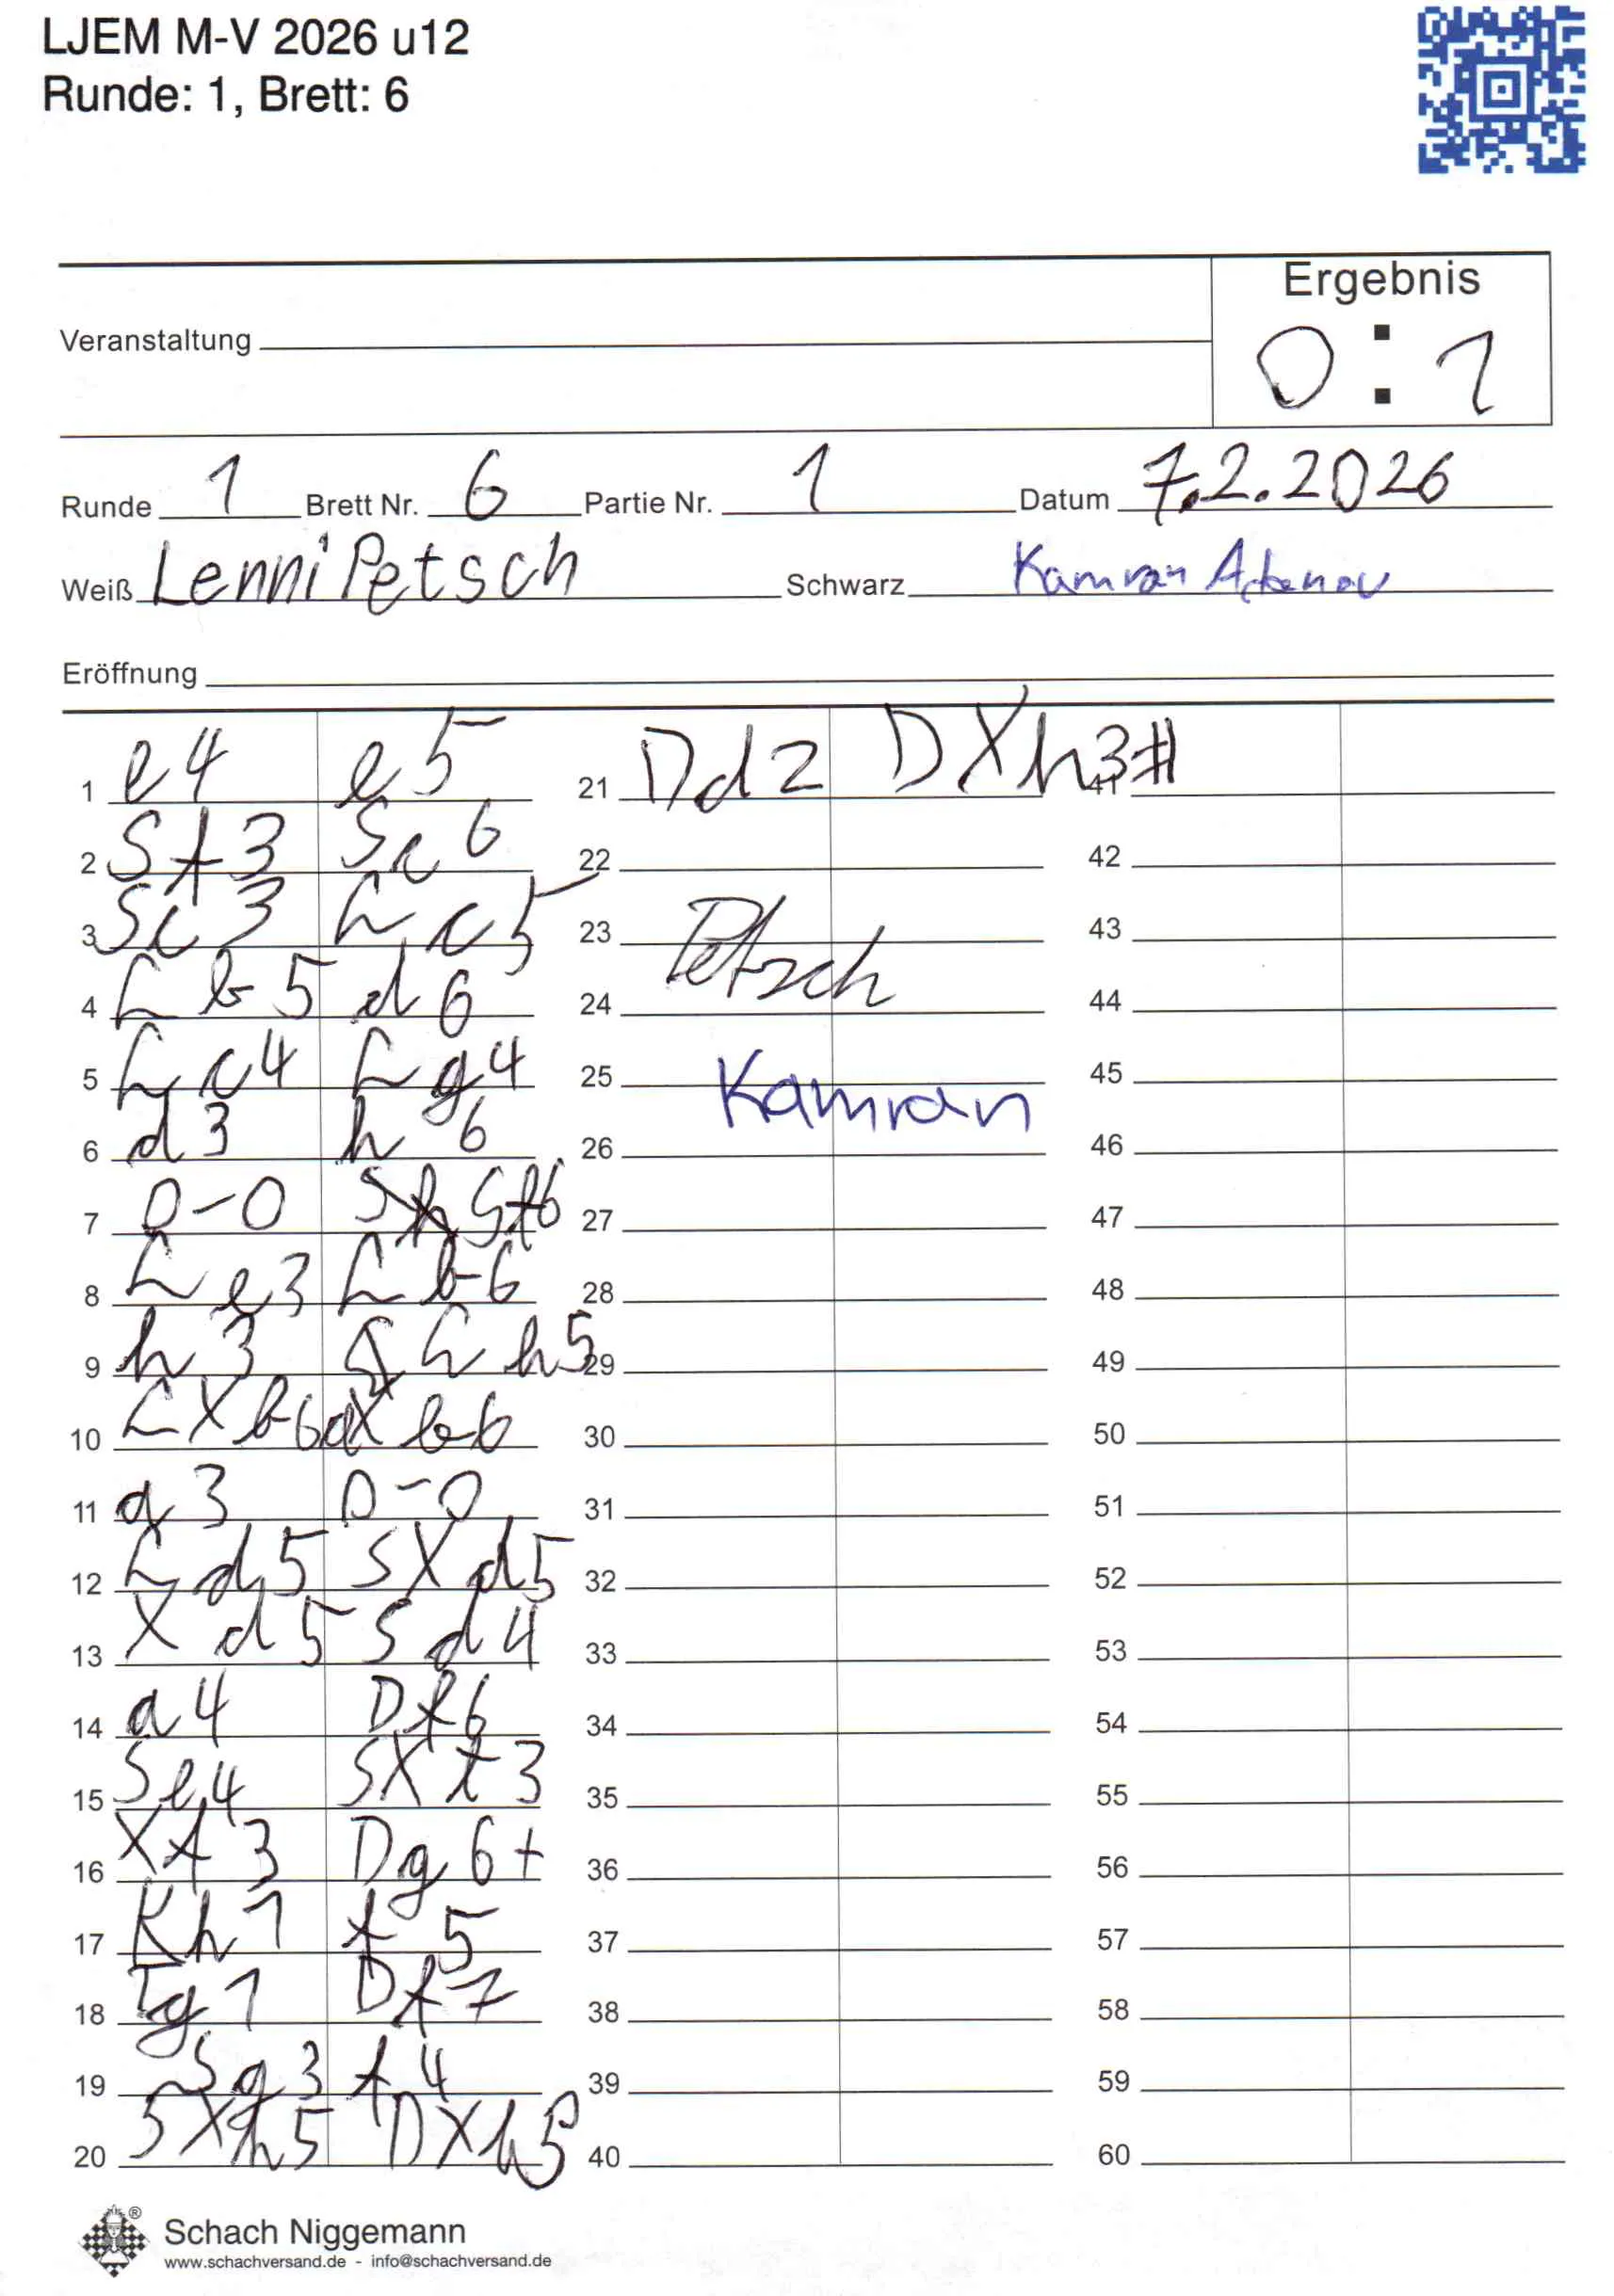 LJEM M-V 2026 u12
Runde: 1, Brett: 6
Ergebnis
Veranstaltung
0 : 1
Runde 1 Brett Nr. 6 Partie Nr. 1 Datum 7.2.2026
Weiß Lenni Petsch Schwarz Kamran
Eröffnung
1 e4 e5 21 Dd2 DXh3# 41
2 Sf3 Sc6 22 42
3 Sc3 Lc5 23 43
Petsch
4 Lb5 d6 24 44
5 Lc4 Lg4 25 45
Kamran
6 d3 h6 26 46
7 0-0 Sf6 27 47
8 Le3 Lb6 28 48
9 h3 Lh5 29 49
10 LXb6 aXb6 30 50
11 a3 0-0 31 51
12 Ld5 SXd5 32 52
13 Xd5 Sd4 33 53
14 a4 Df6 34 54
15 Se4 SXf3 35 55
16 Xf3 Dg6+ 36 56
17 Kh1 f5 37 57
18 Tg1 Df7 38 58
19 Sg3 f4 39 59
20 SXh5 DXh5 40 60
®
Schach Niggemann
www.schachversand.de - info@schachversand.de